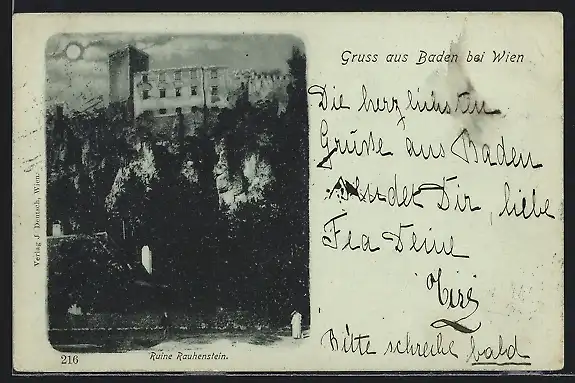 Gruss aus Baden bei Wien
Die herzlichsten
Grüße aus Baden
sendet Dir, liebe
Deine
Bitte schreibe bald
Verlag J. Deutsch, Wien.
216
Ruine Rauhenstein.